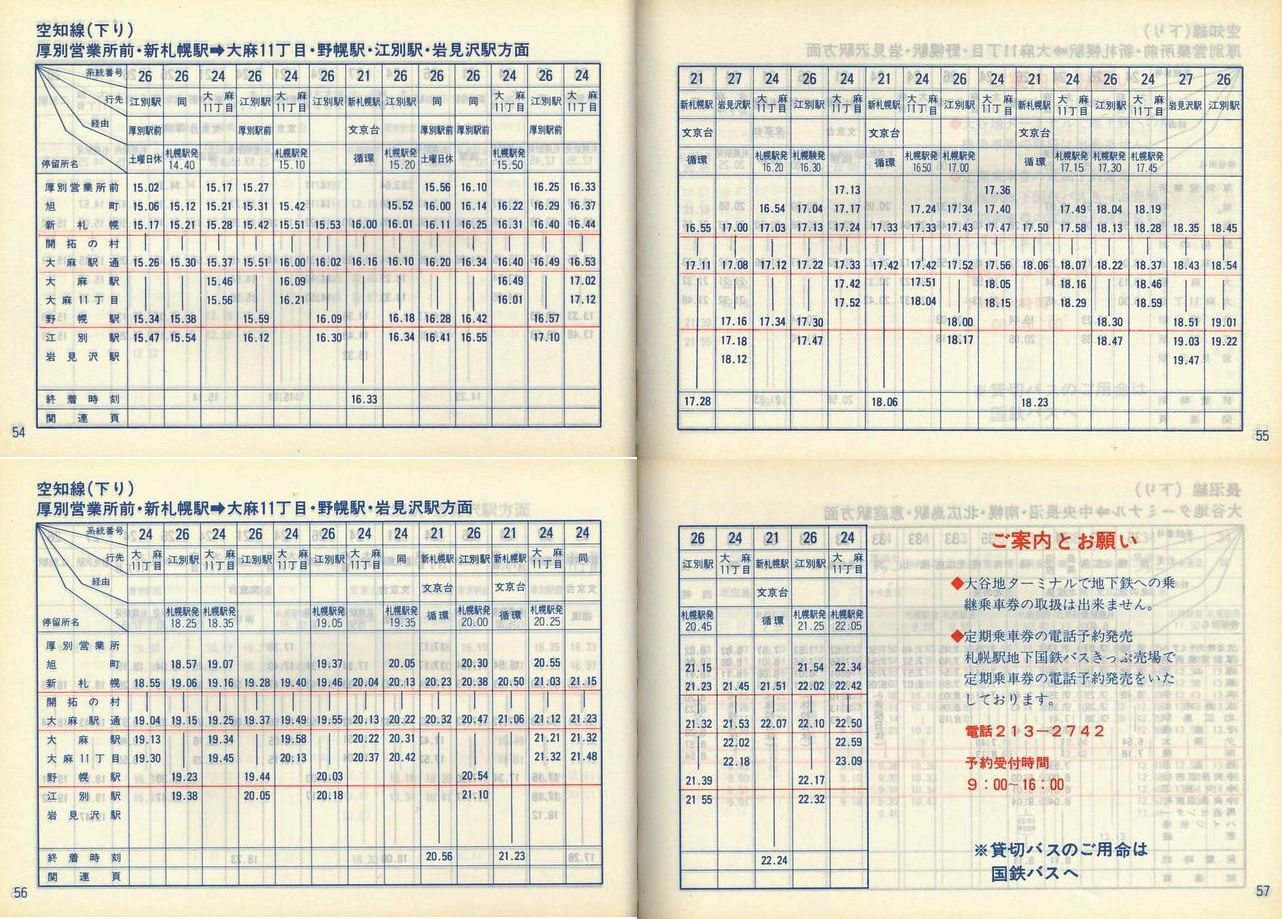 空知線(下り)
厚別営業所前・新札幌駅➡大麻11丁目・野幌駅・江別駅・岩見沢駅方面
系統番号 26 26 24 26 24 26 21 26 26 26 24 26 24
行先 江別駅 同 大麻11丁目 江別駅 大麻11丁目 江別駅 新札幌駅 江別駅 同 同 大麻11丁目 江別駅 大麻11丁目
経由 厚別駅前 厚別駅前 文京台 厚別駅前 厚別駅前 厚別駅前
停留所名 土曜日休 札幌駅発14.40 札幌駅発15.10 循環 札幌駅発15.20 土曜日休 札幌駅発15.50
厚別営業所前 15.02 15.17 15.27 15.56 16.10 16.25 16.33
旭町 15.06 15.12 15.21 15.31 15.42 15.52 16.00 16.14 16.22 16.29 16.37
新札幌 15.17 15.21 15.28 15.42 15.51 15.53 16.00 16.01 16.11 16.25 16.31 16.40 16.44
開拓の村
大麻駅通 15.26 15.30 15.37 15.51 16.00 16.02 16.16 16.10 16.20 16.34 16.40 16.49 16.53
大麻駅 15.46 16.09 16.49 17.02
大麻11丁目 15.56 16.21 16.01 17.12
野幌駅 15.34 15.38 15.59 16.09 16.18 16.28 16.42 16.57
江別駅 15.47 15.54 16.12 16.30 16.34 16.41 16.55 17.10
岩見沢駅
終着時刻 16.33
関連頁
54
21 27 24 26 24 21 24 26 24 21 24 26 24 27 26
新札幌駅 岩見沢駅 大麻11丁目 江別駅 大麻11丁目 新札幌駅 大麻11丁目 江別駅 大麻11丁目 新札幌駅 大麻11丁目 江別駅 大麻11丁目 岩見沢駅 江別駅
文京台 文京台 文京台
循環 札幌駅発16.20 札幌駅発16.30 循環 札幌駅発16.50 札幌駅発17.00 循環 札幌駅発17.15 札幌駅発17.30 札幌駅発17.45
17.13 17.36
16.54 17.04 17.17 17.24 17.34 17.40 17.49 18.04 18.19
16.55 17.00 17.03 17.13 17.24 17.33 17.33 17.43 17.47 17.50 17.58 18.13 18.28 18.35 18.45
17.11 17.08 17.12 17.22 17.33 17.42 17.42 17.52 17.56 18.06 18.07 18.22 18.37 18.43 18.54
17.42 17.51 18.05 18.16 18.46
17.52 18.04 18.15 18.29 18.59
17.16 17.34 17.30 18.00 18.30 18.51 19.01
17.18 17.47 18.17 18.47 19.03 19.22
18.12 19.47
17.28 18.06 18.23
55
空知線(下り)
厚別営業所前・新札幌駅➡大麻11丁目・野幌駅・岩見沢駅方面
系統番号 24 26 24 26 24 26 24 24 21 26 21 24 24
行先 大麻11丁目 江別駅 大麻11丁目 江別駅 大麻11丁目 江別駅 大麻11丁目 同 新札幌駅 江別駅 新札幌駅 大麻11丁目 同
経由 文京台 文京台
停留所名 札幌駅発18.25 札幌駅発18.35 札幌駅発19.05 札幌駅発19.35 循環 札幌駅発20.00 循環 札幌駅発20.25
厚別営業所
旭町 18.57 19.07 19.37 20.05 20.30 20.55
新札幌 18.55 19.06 19.16 19.28 19.40 19.46 20.04 20.13 20.23 20.38 20.50 21.03 21.15
開拓の村
大麻駅通 19.04 19.15 19.25 19.37 19.49 19.55 20.13 20.22 20.32 20.47 21.06 21.12 21.23
大麻駅 19.13 19.34 19.58 20.22 20.31 21.21 21.32
大麻11丁目 19.30 19.45 20.13 20.37 20.42 21.32 21.48
野幌駅 19.23 19.44 20.03 20.54
江別駅 19.38 20.05 20.18 21.10
岩見沢駅
終着時刻 20.56 21.23
関連頁
56
26 24 21 26 24
江別駅 大麻11丁目 新札幌駅 江別駅 大麻11丁目
文京台
札幌駅発20.45 循環 札幌駅発21.25 札幌駅発22.05
21.15 21.54 22.34
21.23 21.45 21.51 22.02 22.42
21.32 21.53 22.07 22.10 22.50
22.02 22.59
22.18 23.09
21.39 22.17
21 55 22.32
22.24
ご案内とお願い
◆大谷地ターミナルで地下鉄への乗
継乗車券の取扱は出来ません。
◆定期乗車券の電話予約発売
札幌駅地下国鉄バスきっぷ売場で
定期乗車券の電話予約発売をいた
しております。
電話213−2742
予約受付時間
9：00〜16：00
※貸切バスのご用命は
国鉄バスへ
57